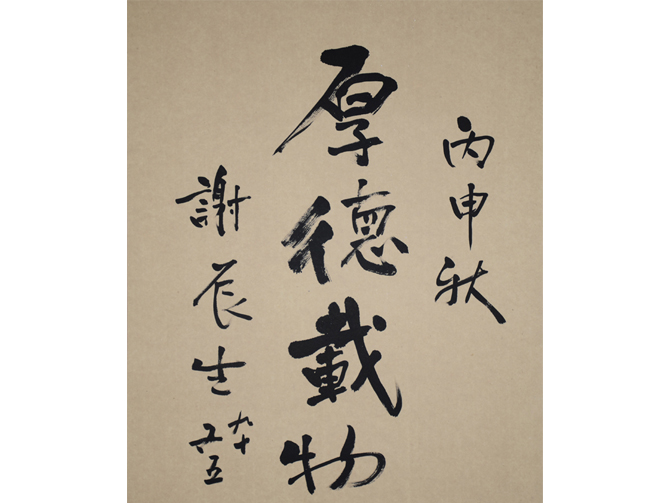 丙申秋
厚德載物
謝辰生
九十又五